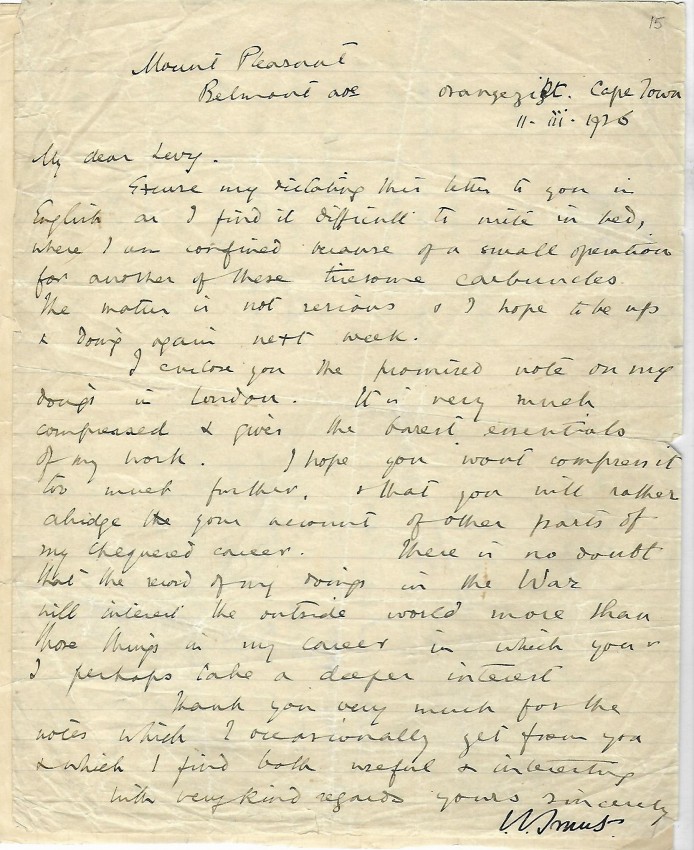 15
Mount Pleasant
Belmont ave Orangezicht. Cape Town
11. iii. 1926
My dear Levy.
Excuse my dictating this letter to you in
English as I find it difficult to write in bed,
where I am confined because of a small operation
for another of these tiresome carbuncles.
The matter is not serious & I hope to be up
& doing again next week.
I enclose you the promised note on my
doings in London. It is very much
compressed & gives the barest essentials
of my work. I hope you wont compress it
too much further, & that you will rather
abridge your account of other parts of
my chequered career. There is no doubt
that the record of my doings in the War
will interest the outside world more than
those things in my career in which you &
I perhaps take a deeper interest
Thank you very much for the
notes which I occasionally get from you
& which I find both useful & interesting
with very kind regards yours sincerely
J.C. Smuts.